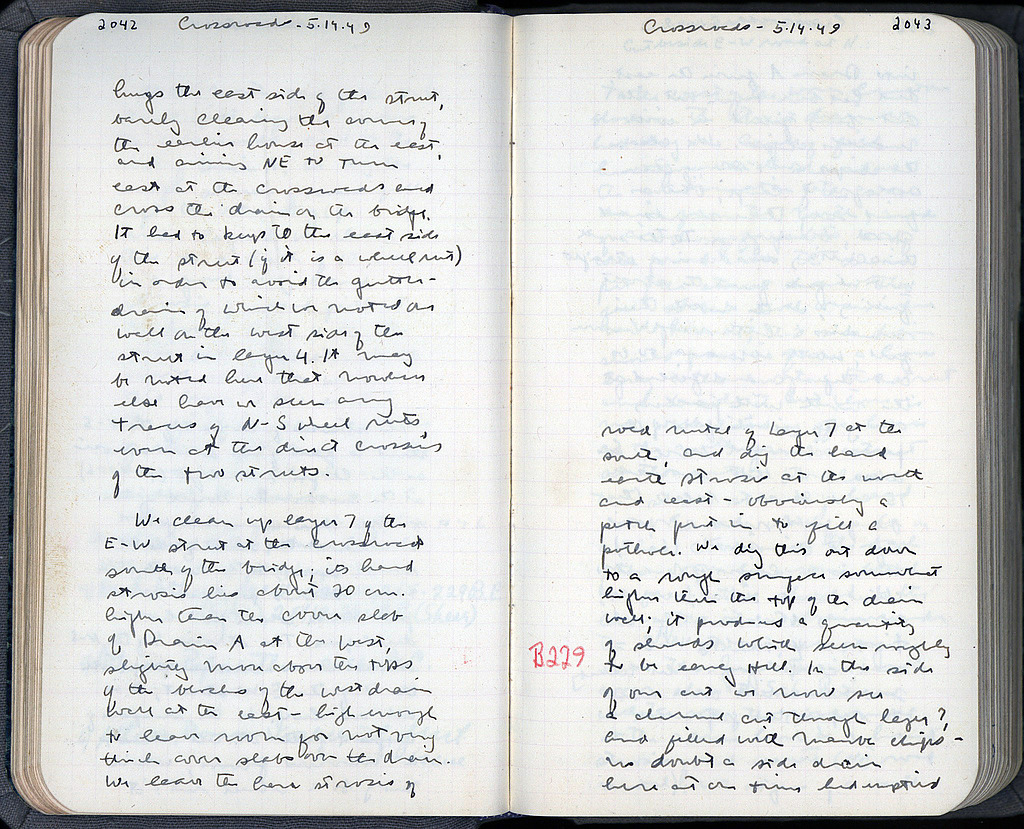 2042 Crossroads - 5.14.49
hugs the east side of the street,
barely clearing the corner of
the earlier house at the east,
and aiming NE to turn
east at the crossroads and
cross the drain on the bridge.
It had to keep to the east side
of the street (if it is a wheel rut)
in order to avoid the gutter-
drain of which we noted as
well on the west side of the
street in layer 4. It may
be noted here that nowhere
else have we seen any
traces of N-S wheel ruts
even at the direct crossing
of the two streets.
We clean up layer 7 of the
E-W street at the crossroads
south of the bridge; its hard
strosis lies about 20 cm.
higher than the cover slab
of Drain A at the west,
slightly more above the tops
of the blocks of the west drain
wall at the east - high enough
to leave room for not very
thick cover slabs over the drain.
We leave the hard strosis of
Crossroads - 5.14.49 2043
road metal of layer 7 at the
south, and dig the hard
earth strosis at the north
and east - obviously a
patch put in to fill a
pothole. We dig this out down
to a rough surface somewhat
higher than the top of the drain
wall; it produces a quantity
B229
of sherds which seem roughly
to be early Hell. In the side
of our cut we now see
a channel cut through layer 7,
and filled with marble chips -
no doubt a side drain
here at one time had emptied